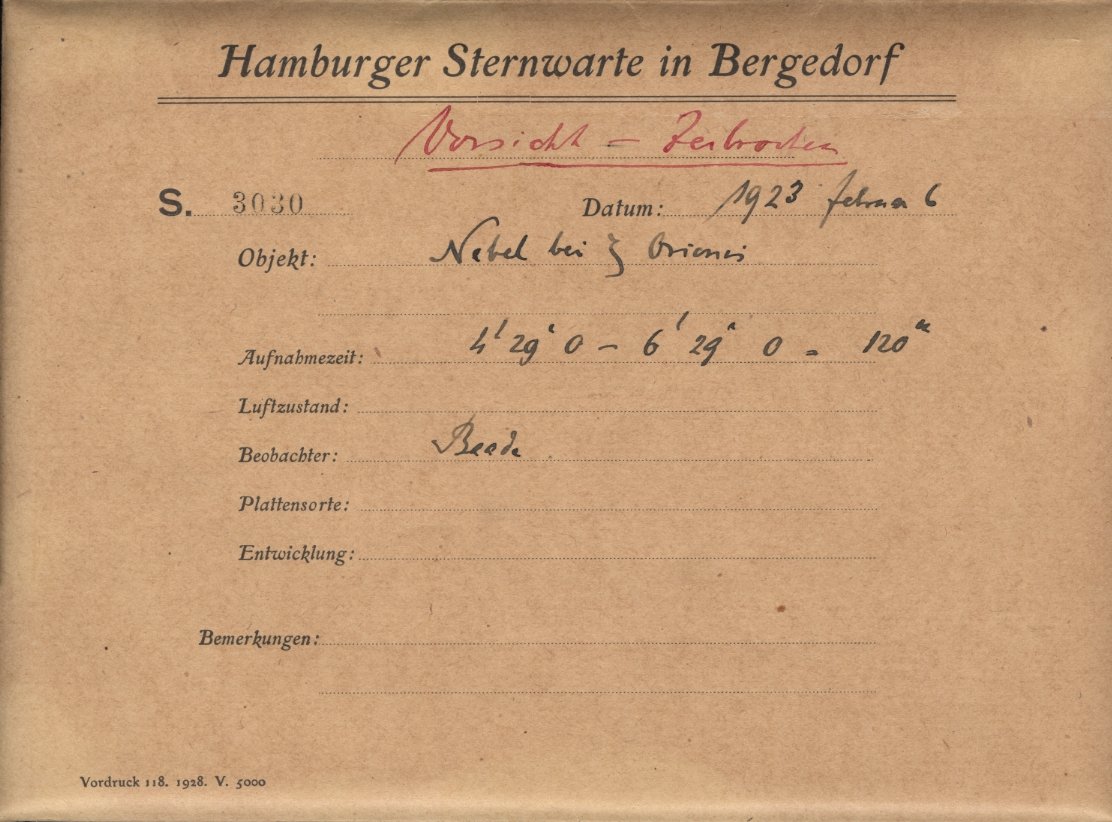 Hamburger Sternwarte in Bergedorf
Vorsicht = Zerbrochen
S. 3030 Datum: 1923 Februar 6
Objekt: Nebel bei ζ Orionis
Aufnahmezeit: 4ʰ 29ᵐ 0 – 6ʰ 29ᵐ 0 = 120ᵐ
Luftzustand:
Beobachter: Baade
Plattensorte:
Entwicklung:
Bemerkungen:
Vordruck 118. 1928. V. 5000